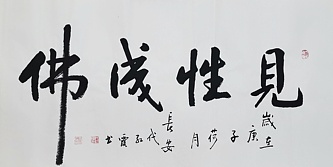 見性成佛
歲在
庚子
荷月
長安
代紅霞書